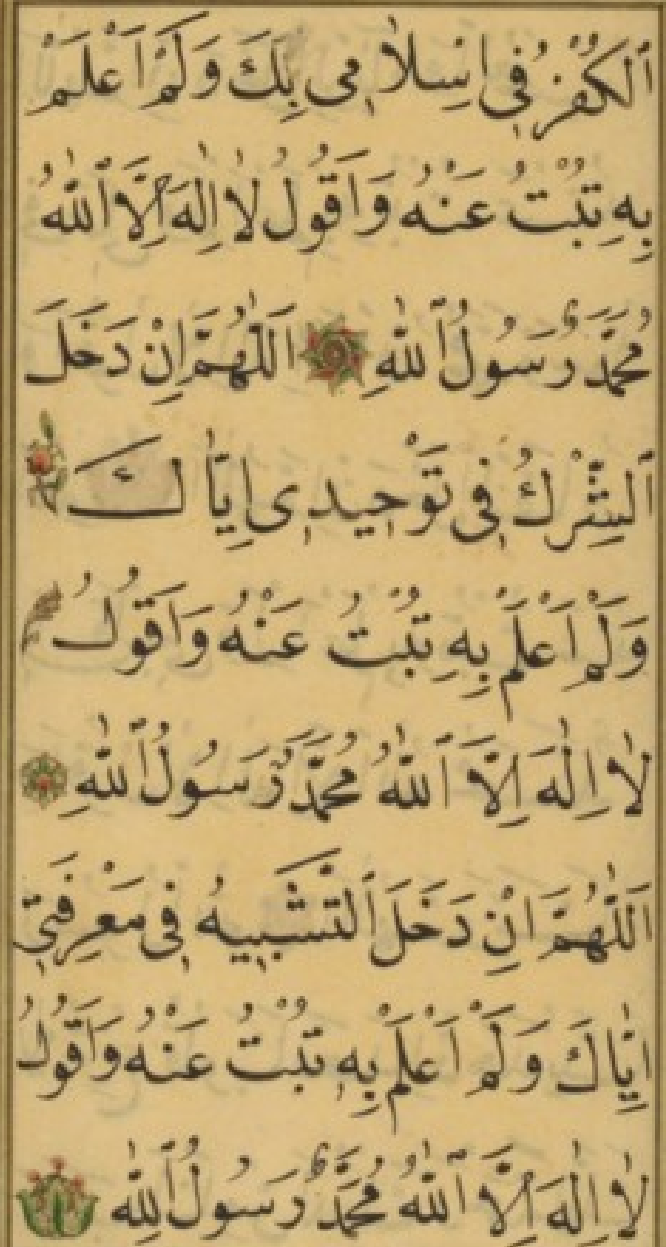 اَلْكُفْرُ فِى اِسْلَامِى بِكَ وَلَمْ اَعْلَمْ
بِهِ تُبْتُ عَنْهُ وَاَقُولُ لَا اِلٰهَ اِلَّا اللّٰهُ
مُحَمَّدٌ رَسُولُ اللّٰهِ اَللّٰهُمَّ اِنْ دَخَلَ
الشِّرْكُ فِى تَوْحِيدِى اِيَّاكَ
وَلَمْ اَعْلَمْ بِهِ تُبْتُ عَنْهُ وَاَقُولُ
لَا اِلٰهَ اِلَّا اللّٰهُ مُحَمَّدٌ رَسُولُ اللّٰهِ
اَللّٰهُمَّ اِنْ دَخَلَ التَّشْبِيهُ فِى مَعْرِفَتِى
اِيَّاكَ وَلَمْ اَعْلَمْ بِهِ تُبْتُ عَنْهُ وَاَقُولُ
لَا اِلٰهَ اِلَّا اللّٰهُ مُحَمَّدٌ رَسُولُ اللّٰهِ